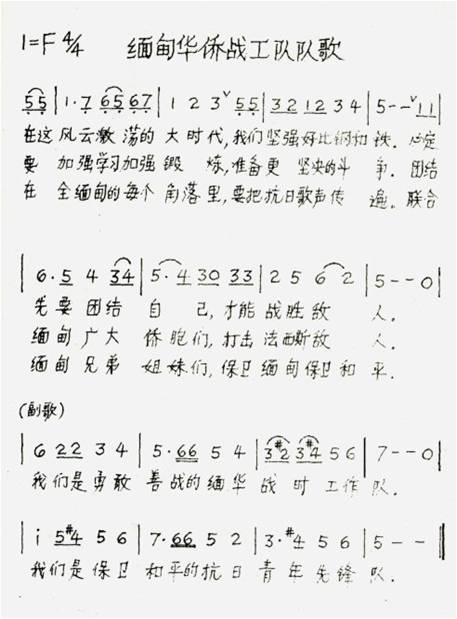 1=F 4/4 缅甸华侨战工队队歌
55 | 1·7 65 67 | 1 2 3 ∨ 55 | 32 12 3 4 | 5 - - ∨ 11 |
在这 风云激荡的 大时代,我们 坚强好比钢和 铁. 必定
要 加强学习加强锻 炼,准备更 坚决的斗 争. 团结
在 全缅甸的每个 角落里,要把抗日歌声传 遍. 联合
| 6·5 4 34 | 5·4 30 33 | 2 5 6 2 | 5 - - 0 |
先要 团结 自 己,才能 战胜敌 人.
缅甸 广大 侨胞们,打击 法西斯敌 人.
缅甸 兄弟 姐妹们,保卫 缅甸保卫和 平.
(副歌)
| 6 22 3 4 | 5·66 5 4 | 3#2 3#4 5 6 | 7 - - 0 |
我们是勇敢 善战的缅华 战时工作 队.
| i 5#4 5 6 | 7·66 5 2 | 3·#4 5 6 | 5 - - ‖
我们是保卫 和平的抗日 青年先锋 队.